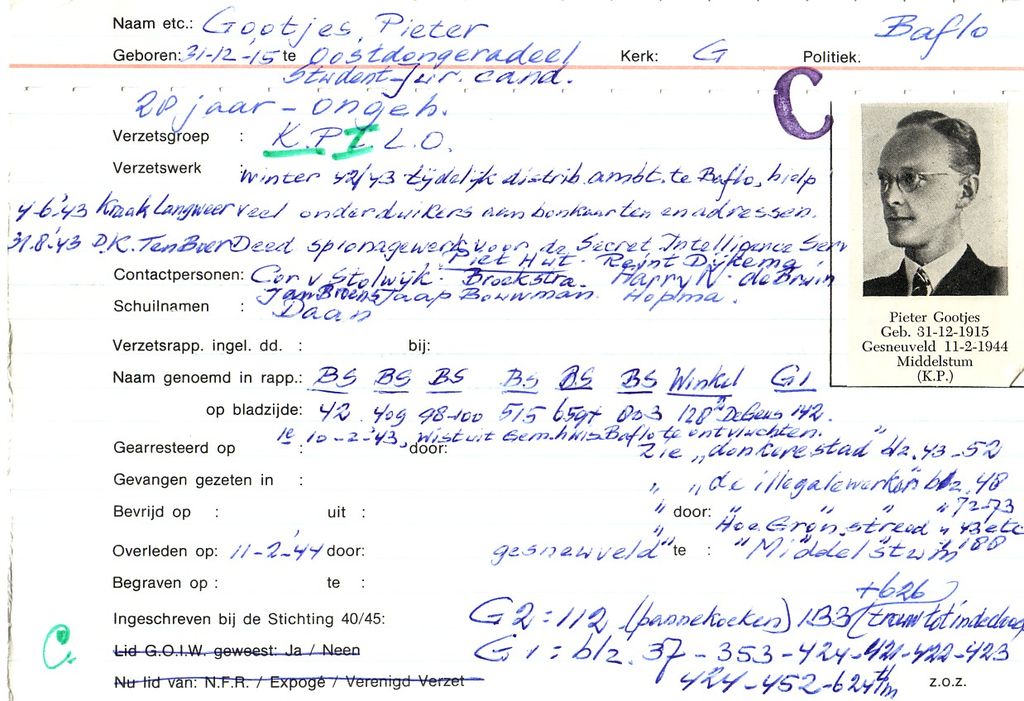 Naam etc.: Gootjes, Pieter Baflo
Geboren: 31-12-'15 te Oostdongeradeel Kerk: G Politiek.
Student-Jur. cand.
28 jaar - ongeh.
C
Verzetsgroep : K.P. L.O.
Verzetswerk : winter 42/43 tijdelijk distrib. ambt. te Baflo, hielp
4-6-'43 Kraak Langweer veel onderduikers aan bonkaarten en adressen.
31.8-'43 D.K. Ten Boer Deed spionagewerk voor de Secret Intelligence Serv
Piet Hut. Reint Dijkema
Contactpersonen: Cor v Stolwijk. Broekstra. Harry N. de Bruin
Jan Broens Jaap Bouwman. Hopma.
Schuilnamen : Daan
Pieter Gootjes
Geb. 31-12-1915
Gesneuveld 11-2-1944
Middelstum
(K.P.)
Verzetsrapp. ingel. dd. : bij:
Naam genoemd in rapp.: BS BS BS BS BS BS Winkel G1
op bladzijde: 42 409 98-100 515 803 128 De Geus 142.
1e 10-2-'43, wist uit Gem.huis Baflo te ontvluchten.
Gearresteerd op : door: Zie „donkere stad blz. 43-52
Gevangen gezeten in : " „de illegale werkers" blz. 48
" " " " 72-73
Bevrijd op : uit : door:
" Hoe Gron. streed " 43 etc
" " 188
Overleden op: 11-2-'44 door: gesneuveld te : Middelstum
Begraven op : te :
+626
Ingeschreven bij de Stichting 40/45: G2 = 112 (pannekoeken) 133 (trouw tot in de dood)
C.
Lid G.O.I.W. geweest: Ja / Neen G1 = blz. 37-353-424-421-422-423
Nu lid van: N.F.R. / Expogé / Verenigd Verzet 424-452-624 t/m z.o.z.